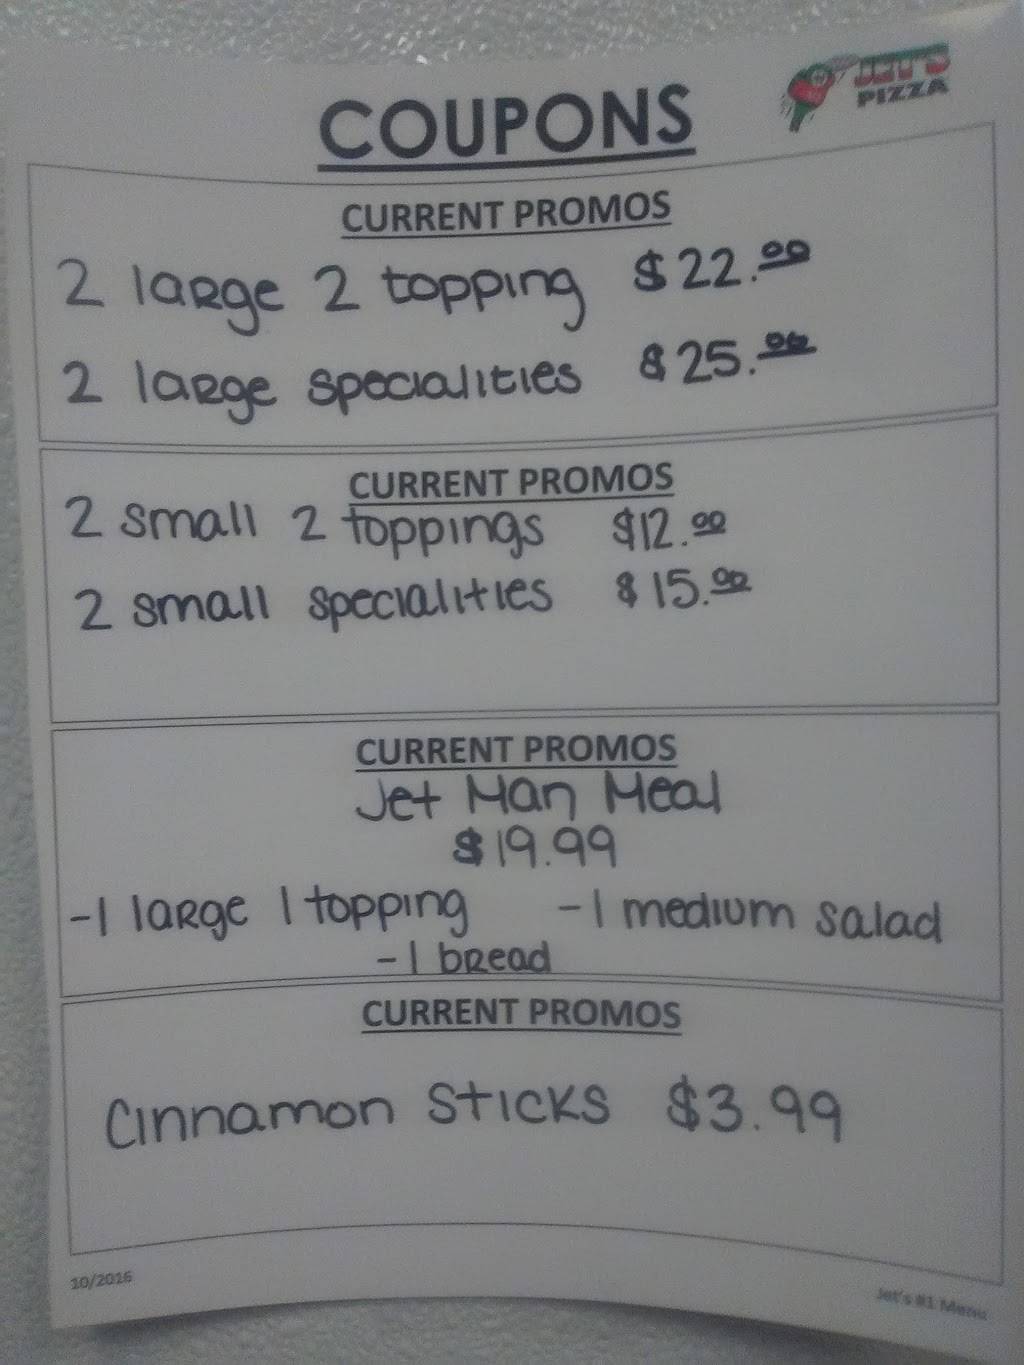 JET'S
PIZZA
COUPONS
CURRENT PROMOS
2 large 2 topping $22.00
2 large specialities $25.00
CURRENT PROMOS
2 small 2 toppings $12.00
2 small specialities $15.00
CURRENT PROMOS
Jet Man Meal
$19.99
-1 large 1 topping -1 medium salad
-1 bread
CURRENT PROMOS
Cinnamon Sticks $3.99
10/2016
Jet's #1 Menu